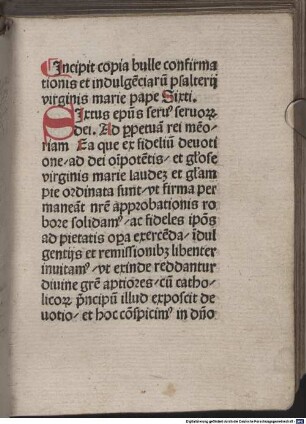 Incipit copia bulle confirma
tionis et indulgẽciarũ psalterij
virginis marie pape Sixti.
Sixtus ep̃us seruꝰ seruoꝝ
dei. Ad ꝑpetuã rei mẽo
riam Ea que ex fideliũ deuoti
one/ad dei oĩpotẽtis/et gl̃ose
virginis marie laudeʒ et gl̃am
pie ordinata sunt/vt firma per
maneãt nr̃e approbationis ro
bore solidamꝰ/ac fideles ip̃os
ad pietatis oꝑa exercẽda/ĩdul
gentijs et remissionibʒ libenter
inuitamꝰ/vt exinde reddantur
diuine gr̃e aptiores/cũ catho
licoꝝ pñcipũ illud exposcit de
uotio/et hoc cõspicimꝰ in dño